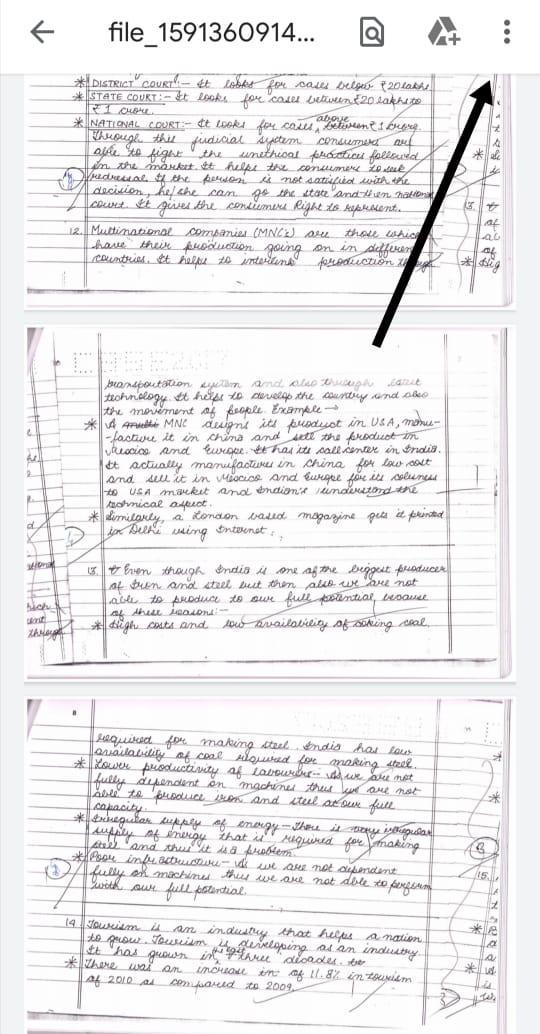 file_1591360914...
* DISTRICT COURT:- It looks for cases below ₹20 lakhs.
* STATE COURT:- It looks for cases between ₹20 lakhs to
₹1 crore.
* NATIONAL COURT:- It looks for cases, above ₹1 crore.
Through this judicial system consumers are
able to fight the unethical practices followed
in the market. It helps the consumers to seek
redressal. If the person is not satisfied with the
decision, he/she can go the state and then national
court. It gives the consumers Right to represent.
12. Multinational companies (MNCs) are those which
have their production going on in different
countries. It helps to interlink production through
transportation system and also through latest
technology. It helps to develop the country and also
the movement of people. Example →
* A MNC designs its product in USA, manu-
-facture it in China and sell the product in
Mexico and Europe. It has its call center in India.
It actually manufactures in China for low cost
and sell it in Mexico and Europe for its closeness
to USA market and Indian's understand the
technical aspect.
* Similarly, a London based magazine gets it printed
in Delhi using Internet.
13. Even though India is one of the biggest producer
of Iron and steel but then also we are not
able to produce to our full potential because
of these reasons:-
* High costs and low availability of coking coal
required for making steel. India has low
availability of coal required for making steel.
* Lower productivity of labourers- As we are not
fully dependent on machines thus we are not
able to produce iron and steel at our full
capacity.
* Irregular supply of energy - There is very irregular
supply of energy that is required for making
steel and thus it is a problem.
* Poor infrastructure - As we are not dependent
fully on machines thus we are not able to perform
with our full potential.
14. Tourism is an industry that helps a nation
to grow. Tourism is developing as an industry
It has grown in last three decades.
* There was an increase in of 11.8% in tourism
of 2010 as compared to 2009.